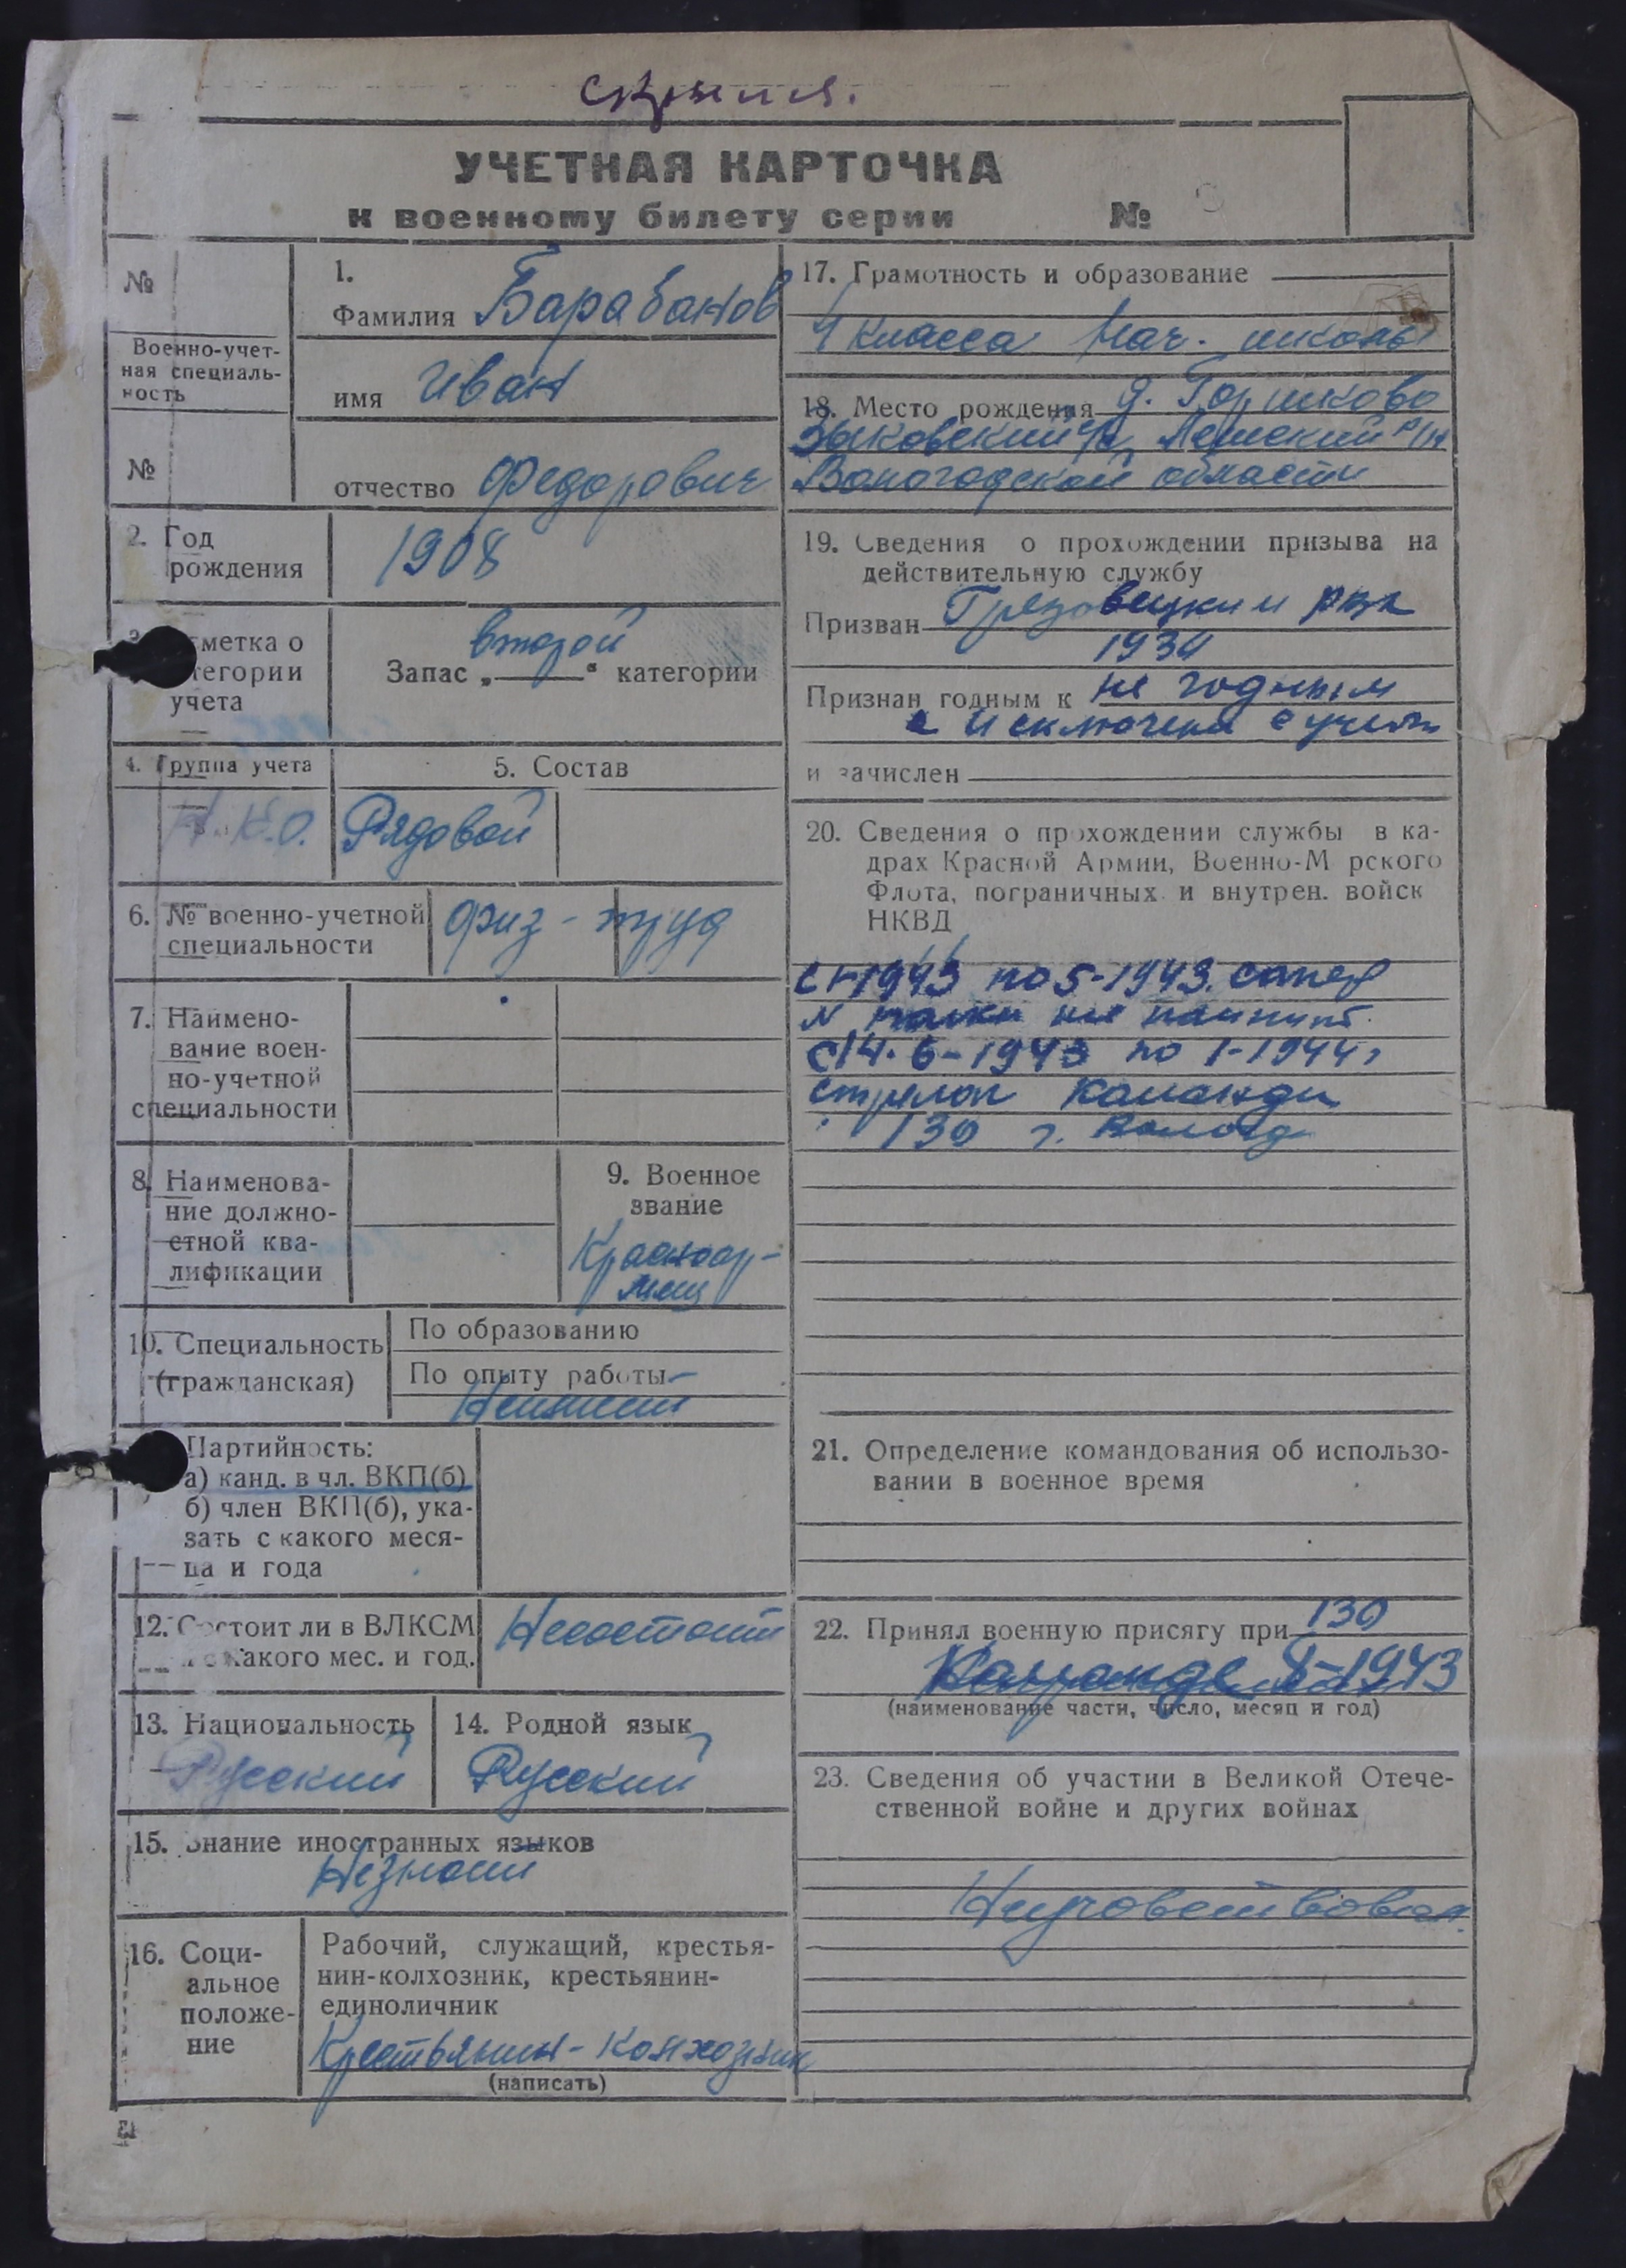 УЧЕТНАЯ КАРТОЧКА
к военному билету серии №
№
Военно-учет-
ная специаль-
ность
№
1.
Фамилия Барабанов
имя Иван
отчество Федорович
2. Год
рождения
1908
метка о
тегории
учета
второй
Запас „ “ категории
4. Группа учета
Н.К.О.
5. Состав
Рядовой
6. № военно-учетной
специальности
физ-труд
7. Наимено-
вание воен-
но-учетной
специальности
8. Наименова-
ние должно-
стной ква-
лификации
9. Военное
звание
Красноар-
меец
10. Специальность
(гражданская)
По образованию
По опыту работы-
Неимеет
Партийность:
а) канд. в чл. ВКП(б)
б) член ВКП(б), ука-
зать с какого меся-
ца и года
12. Состоит ли в ВЛКСМ
и с какого мес. и год.
Несостоит
13. Национальность
Русский
14. Родной язык
Русский
15. Знание иностранных языков
Незнает
16. Соци-
альное
положе-
ние
Рабочий, служащий, крестья-
нин-колхозник, крестьянин-
единоличник
Крестьянин-колхозник
(написать)
17. Грамотность и образование
4 класса Нач. школы
18. Место рождения д. Горшково
Зыковский с/с, Лежский р/н
Вологодской области
19. Сведения о прохождении призыва на
действительную службу
Призван Грязовецким рвк
193
Признан годным к не годным
и исключен с учета
и зачислен
20. Сведения о прохождении службы в ка-
драх Красной Армии, Военно-Морского
Флота, пограничных и внутрен. войск
НКВД
1943 по 5-1943. сапер
N полка не помнит.
с 14.6-1943 по 1-1944г
стрелок команды
130 г. Вологда
21. Определение командования об использо-
вании в военное время
22. Принял военную присягу при 130
Команде 1943
(наименование части, число, месяц и год)
23. Сведения об участии в Великой Отече-
ственной войне и других войнах
Неучаствовал